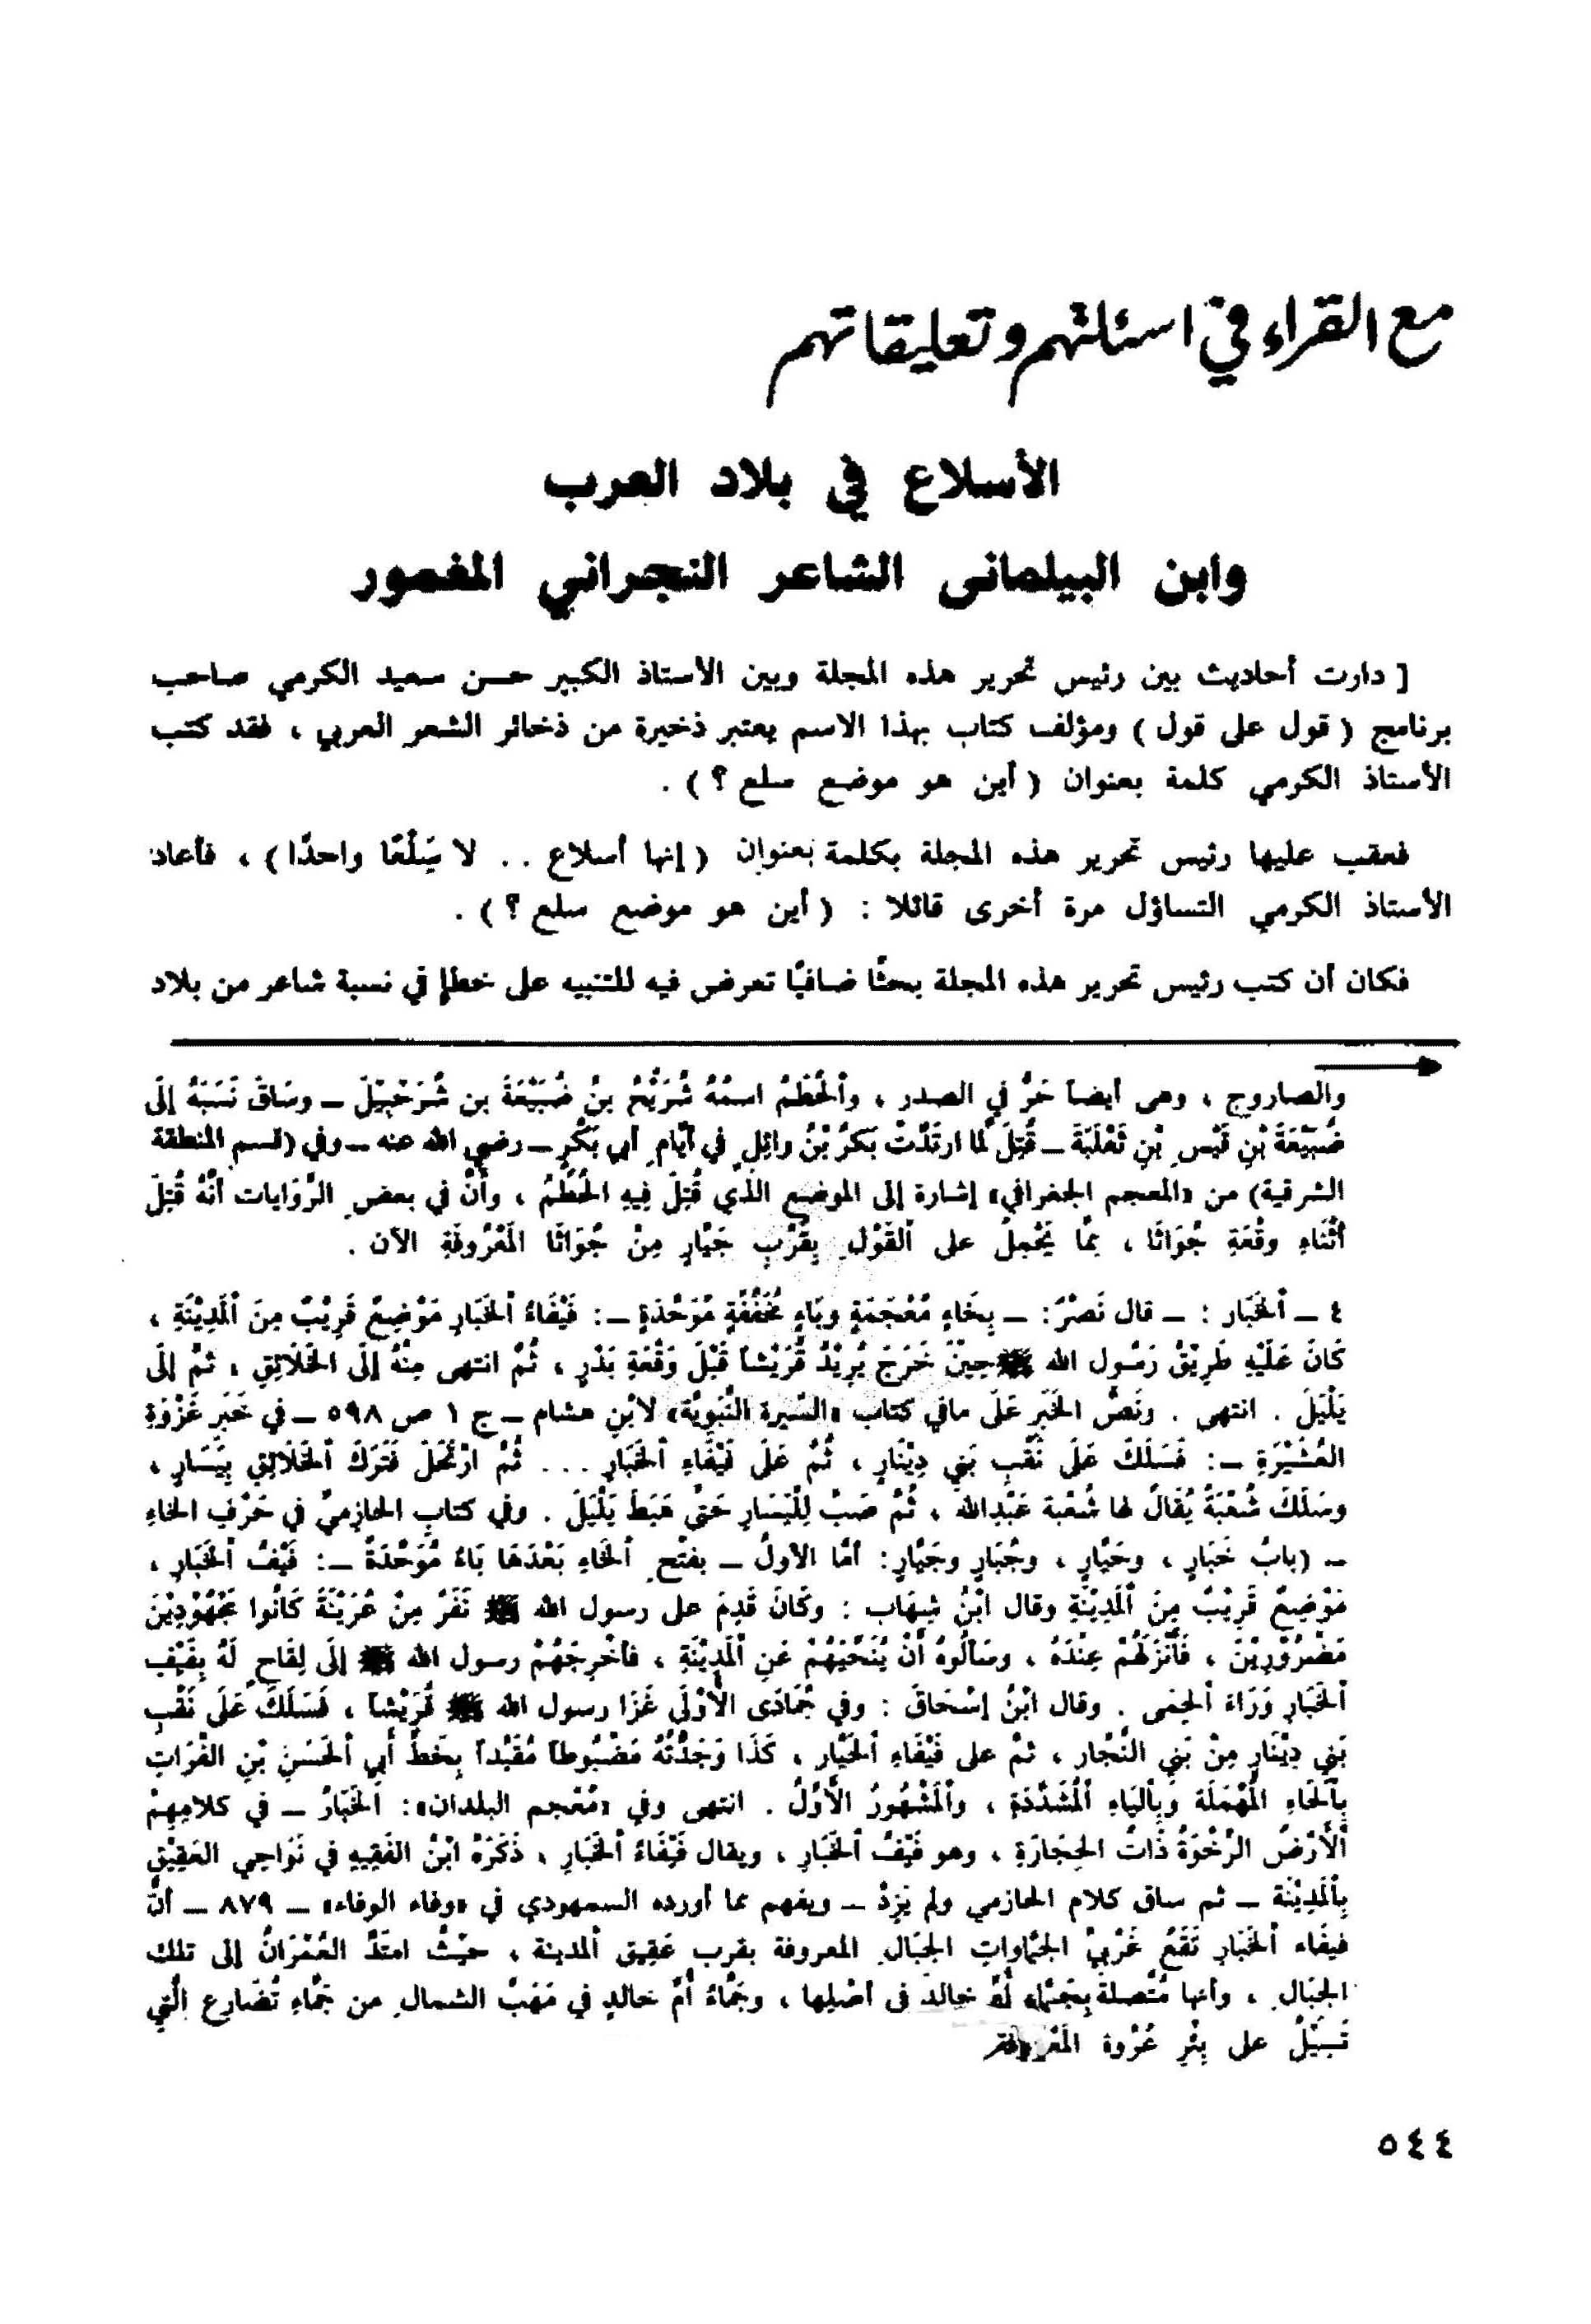 مع القراء في اسئلتهم وتعليقاتهم
الأسلاع في بلاد العرب
وابن البيلمانى الشاعر النجراني المغمور
[ دارت أحاديث بين رئيس تحرير هذه المجلة وبين الأستاذ الكبير حسن سعيد الكرمي صاحب
برنامج ( قول على قول ) ومؤلف كتاب بهذا الاسم يعتبر ذخيرة من ذخائر الشعر العربي ، فقد كتب
الأستاذ الكرمي كلمة بعنوان ( أين هو موضع سلع ؟ ) .
فعقب عليها رئيس تحرير هذه المجلة بكلمة بعنوان ( إنها أسلاع . . لا سَلْعًا واحدًا ) ، فأعاد
الأستاذ الكرمي التساؤل مرة أخرى قائلا : ( أين هو موضع سلع ؟ ) .
فكان أن كتب رئيس تحرير هذه المجلة بحثًا ضافيًا تعرض فيه للتنبيه على خطإ في نسبة شاعر من بلاد
والصاروج ، وهى أيضاً حَرٌّ في الصدر ، وٱلْحُطَمُ اسمُهُ شُرَيْحُ بنُ ضُبَيْعَةَ بن شُرَحْبِيْلَ ـ وسَاقَ نَسَبَهُ إلَى
ضُبَيْعَةَ بْنِ قَيْسِ بْنِ ثَعْلَبَةَ ـ قُتِلَ لَمَّا ارتَدَّتْ بَكرُ بْنُ وائِلٍ في أيَّامِ أبي بَكْرٍ ـ رضي الله عنه ـ وفي (قسم المنطقة
الشرقية) من «المعجم الجغرافي» إشارة إلى الموضع الَّذي قُتِلَ فِيهِ الْحُطَمُ ، وأنَّ في بعض الرِّوَايات أنَّهُ قُتِلَ
أثْنَاءَ وقْعَةِ جُوَاثَا ، مِمَّا يَحْمِلُ على ٱلقَوْلِ بِقُرْبِ جَيَّارٍ مِنْ جُوَاثَا المَعْرُوفَةِ الآن .
٤ ـ ٱلخَبَار : ـ قال نَصْرٌ: ـ بِخَاءٍ مُعْجَمَةٍ وبَاءٍ مُخَفَّفَةٍ مُوَحَّدَةٍ ـ: فَيْفَاءُ ٱلخَبَارِ مَوْضِعٌ قَرِيْبٌ مِنَ ٱلمَدِيْنَةِ ،
كَانَ عَلَيْهِ طَرِيْقُ رَسُولِ الله ﷺ حِيْنَ خَرَجَ يُرِيْدُ قُرَيْشاً قَبْلَ وَقْعَةِ بَدْرٍ ، ثُمَّ انتهى مِنْهُ إلَى الخَلَائِقِ ، ثمَّ إلَى
يَلْيَلَ . انتهى . ونَصُّ الخَبَرِ عَلَى مافي كتاب «السِّيرة النَّبوِيَّة» لابْنِ هشام ـ ج ١ ص ٥٩٨ ـ في خَبَرِ غَزْوَةِ
العُشَيْرَةِ ـ: فَسَلَكَ عَلَى نَقْبِ بَنِي دِيْنَارٍ ، ثُمَّ عَلَى فَيْفَاءِ ٱلخَبَارِ . . . ثُمَّ ارْتَحَلَ فَتَرَكَ ٱلخَلَائِقَ بِيَسَارٍ ،
وسَلَكَ شُعْبَةً يُقَالُ لها شُعْبة عَبْدِالله ، ثُمَّ صَبَّ لِلْيَسَارِ حَتَّى هَبَطَ يَلْيَلَ . وفي كتاب الحازِميِّ في حَرْفِ الخاءِ
ـ (بابُ خَبَارٍ ، وحَيَّارٍ ، وجُبَارٍ وجَيَّارٍ: أمَّا الأولُ ـ بفتْحِ ٱلخَاءِ بَعْدَهَا بَاءٌ مُوَحَّدَةٌ ـ: فَيْفُ ٱلخَبَارِ ،
مَوْضِعٌ قَرِيْبٌ مِنَ ٱلمَدِيْنَةِ وقال ابْنُ شِهَاب : وكَانَ قَدِمَ على رسول الله ﷺ نَفَرٌ مِنْ عُرَيْنَةَ كَانُوا مَجْهُوْدِيْنَ
مَضْرُوْرِيْنَ ، فَأَنْزَلَهُمْ عِنْدَهُ ، وسَألُوهُ أنْ يُنَحِّيَهُمْ عَنِ ٱلمَدِيْنَةِ ، فأخْرجَهُمْ رسول الله ﷺ إلَى لِقَاحٍ لَهُ بِفَيْفِ
ٱلخَبَارِ وَرَاءَ ٱلحِمَى . وقال ابْنُ إسْحَاقَ : وفي جُمَادَى الأوْلَى غَزَا رسول الله ﷺ قُرَيْشاً ، فَسَلَكَ عَلَى نَقْبِ
بَنِي دِيْنَارٍ مِنْ بَنِي النَّجَّار ، ثمَّ على فَيْفَاءِ ٱلحَيَّارِ ، كَذَا وَجَدْتُهُ مَضْبُوطاً مُقَيَّداً بِخَطِّ أبي ٱلحَسَنِ بْنِ الفُرَاتِ
بِٱلحَاءِ المُهْمَلَةِ وبِٱليَاءِ ٱلْمُشَدَّدَةِ ، وٱلمَشْهُورُ الأوَّلُ . انتهى وفي «مُعْجم البلدان»: ٱلخَبَارُ ـ في كلامِهِمْ
ٱلأَرْضُ الرِّخْوَةُ ذَاتُ الحِجَارَةِ ، وهو فَيْفُ ٱلخَبَارِ ، ويقال فَيْفَاءُ ٱلخَبَارِ ، ذَكَرَهُ ابْنُ الفَقِيهِ في نَوَاحِي العَقِيْقِ
بِٱلمَدِيْنَة ـ ثم ساق كلام الحازمي ولم يَزِدْ ـ ويفهم مما أورده السمهودي في «وفاء الوفاء» ـ ٨٧٩ ـ أنَّ
فيفَاء ٱلخَبَارِ تَقَعُ غَرْبِيَّ الجَمَّاواتِ الجِبَالِ المعروفة بقرب عَقِيقِ ٱلمدينة ، حَيْثُ امتَدَّ العُمْرَانُ إلى تلك
الجِبَالِ ، وأنها مُتَّصلة بِجَمَّاء أُمِّ خالد فى أصْلِها ، وجَمَّاءُ أُمِّ خالدٍ في مَهَبِّ الشمالِ من جَمَّاءِ تُضَارِع الَّتي
تَسِيْلُ على بِئْرِ عُرْوة المَعْروفة
٥٤٤